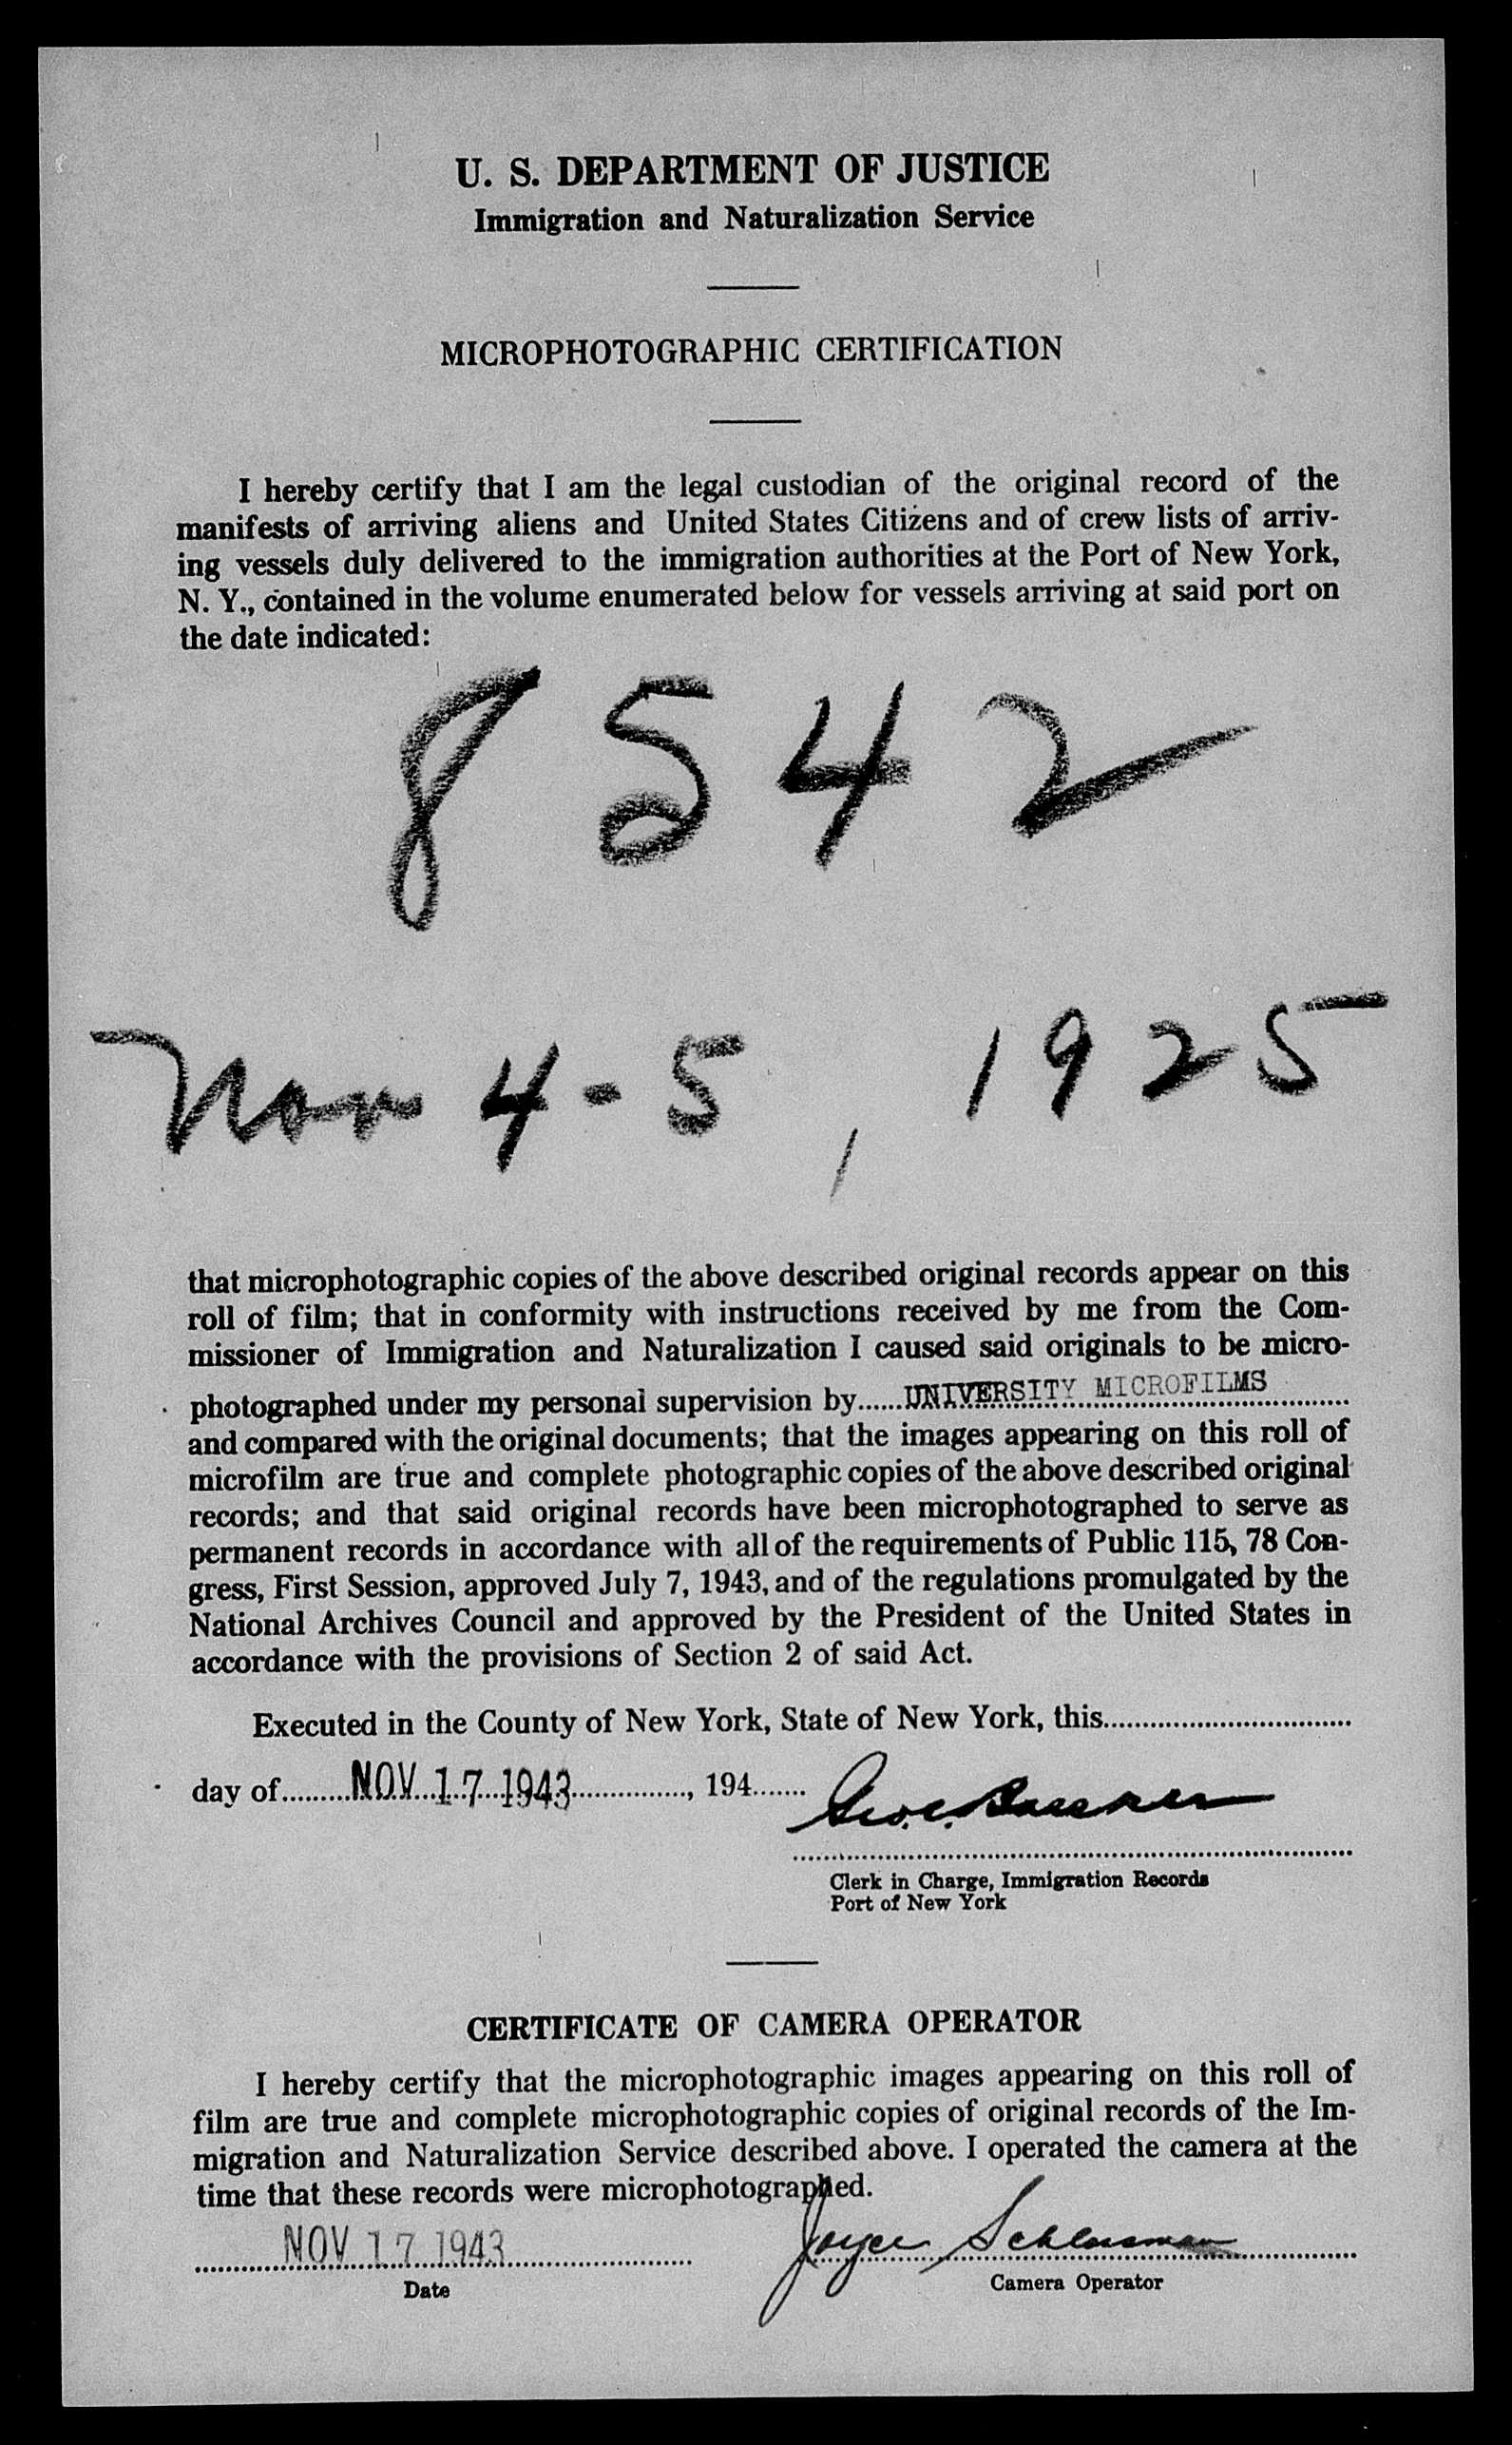 U. S. DEPARTMENT OF JUSTICE
Immigration and Naturalization Service
MICROPHOTOGRAPHIC CERTIFICATION
I hereby certify that I am the legal custodian of the original record of the
manifests of arriving aliens and United States Citizens and of crew lists of arriv-
ing vessels duly delivered to the immigration authorities at the Port of New York,
N. Y., contained in the volume enumerated below for vessels arriving at said port on
the date indicated:
8542
Nov 4-5, 1925
that microphotographic copies of the above described original records appear on this
roll of film; that in conformity with instructions received by me from the Com-
missioner of Immigration and Naturalization I caused said originals to be micro-
photographed under my personal supervision by......UNIVERSITY MICROFILMS
and compared with the original documents; that the images appearing on this roll of
microfilm are true and complete photographic copies of the above described original
records; and that said original records have been microphotographed to serve as
permanent records in accordance with all of the requirements of Public 115, 78 Con-
gress, First Session, approved July 7, 1943, and of the regulations promulgated by the
National Archives Council and approved by the President of the United States in
accordance with the provisions of Section 2 of said Act.
Executed in the County of New York, State of New York, this
day of NOV 17 1943, 194
Geo. C.
Clerk in Charge, Immigration Records
Port of New York
CERTIFICATE OF CAMERA OPERATOR
I hereby certify that the microphotographic images appearing on this roll of
film are true and complete microphotographic copies of original records of the Im-
migration and Naturalization Service described above. I operated the camera at the
time that these records were microphotographed.
NOV 17 1943 Joyce Schlossman
Date Camera Operator